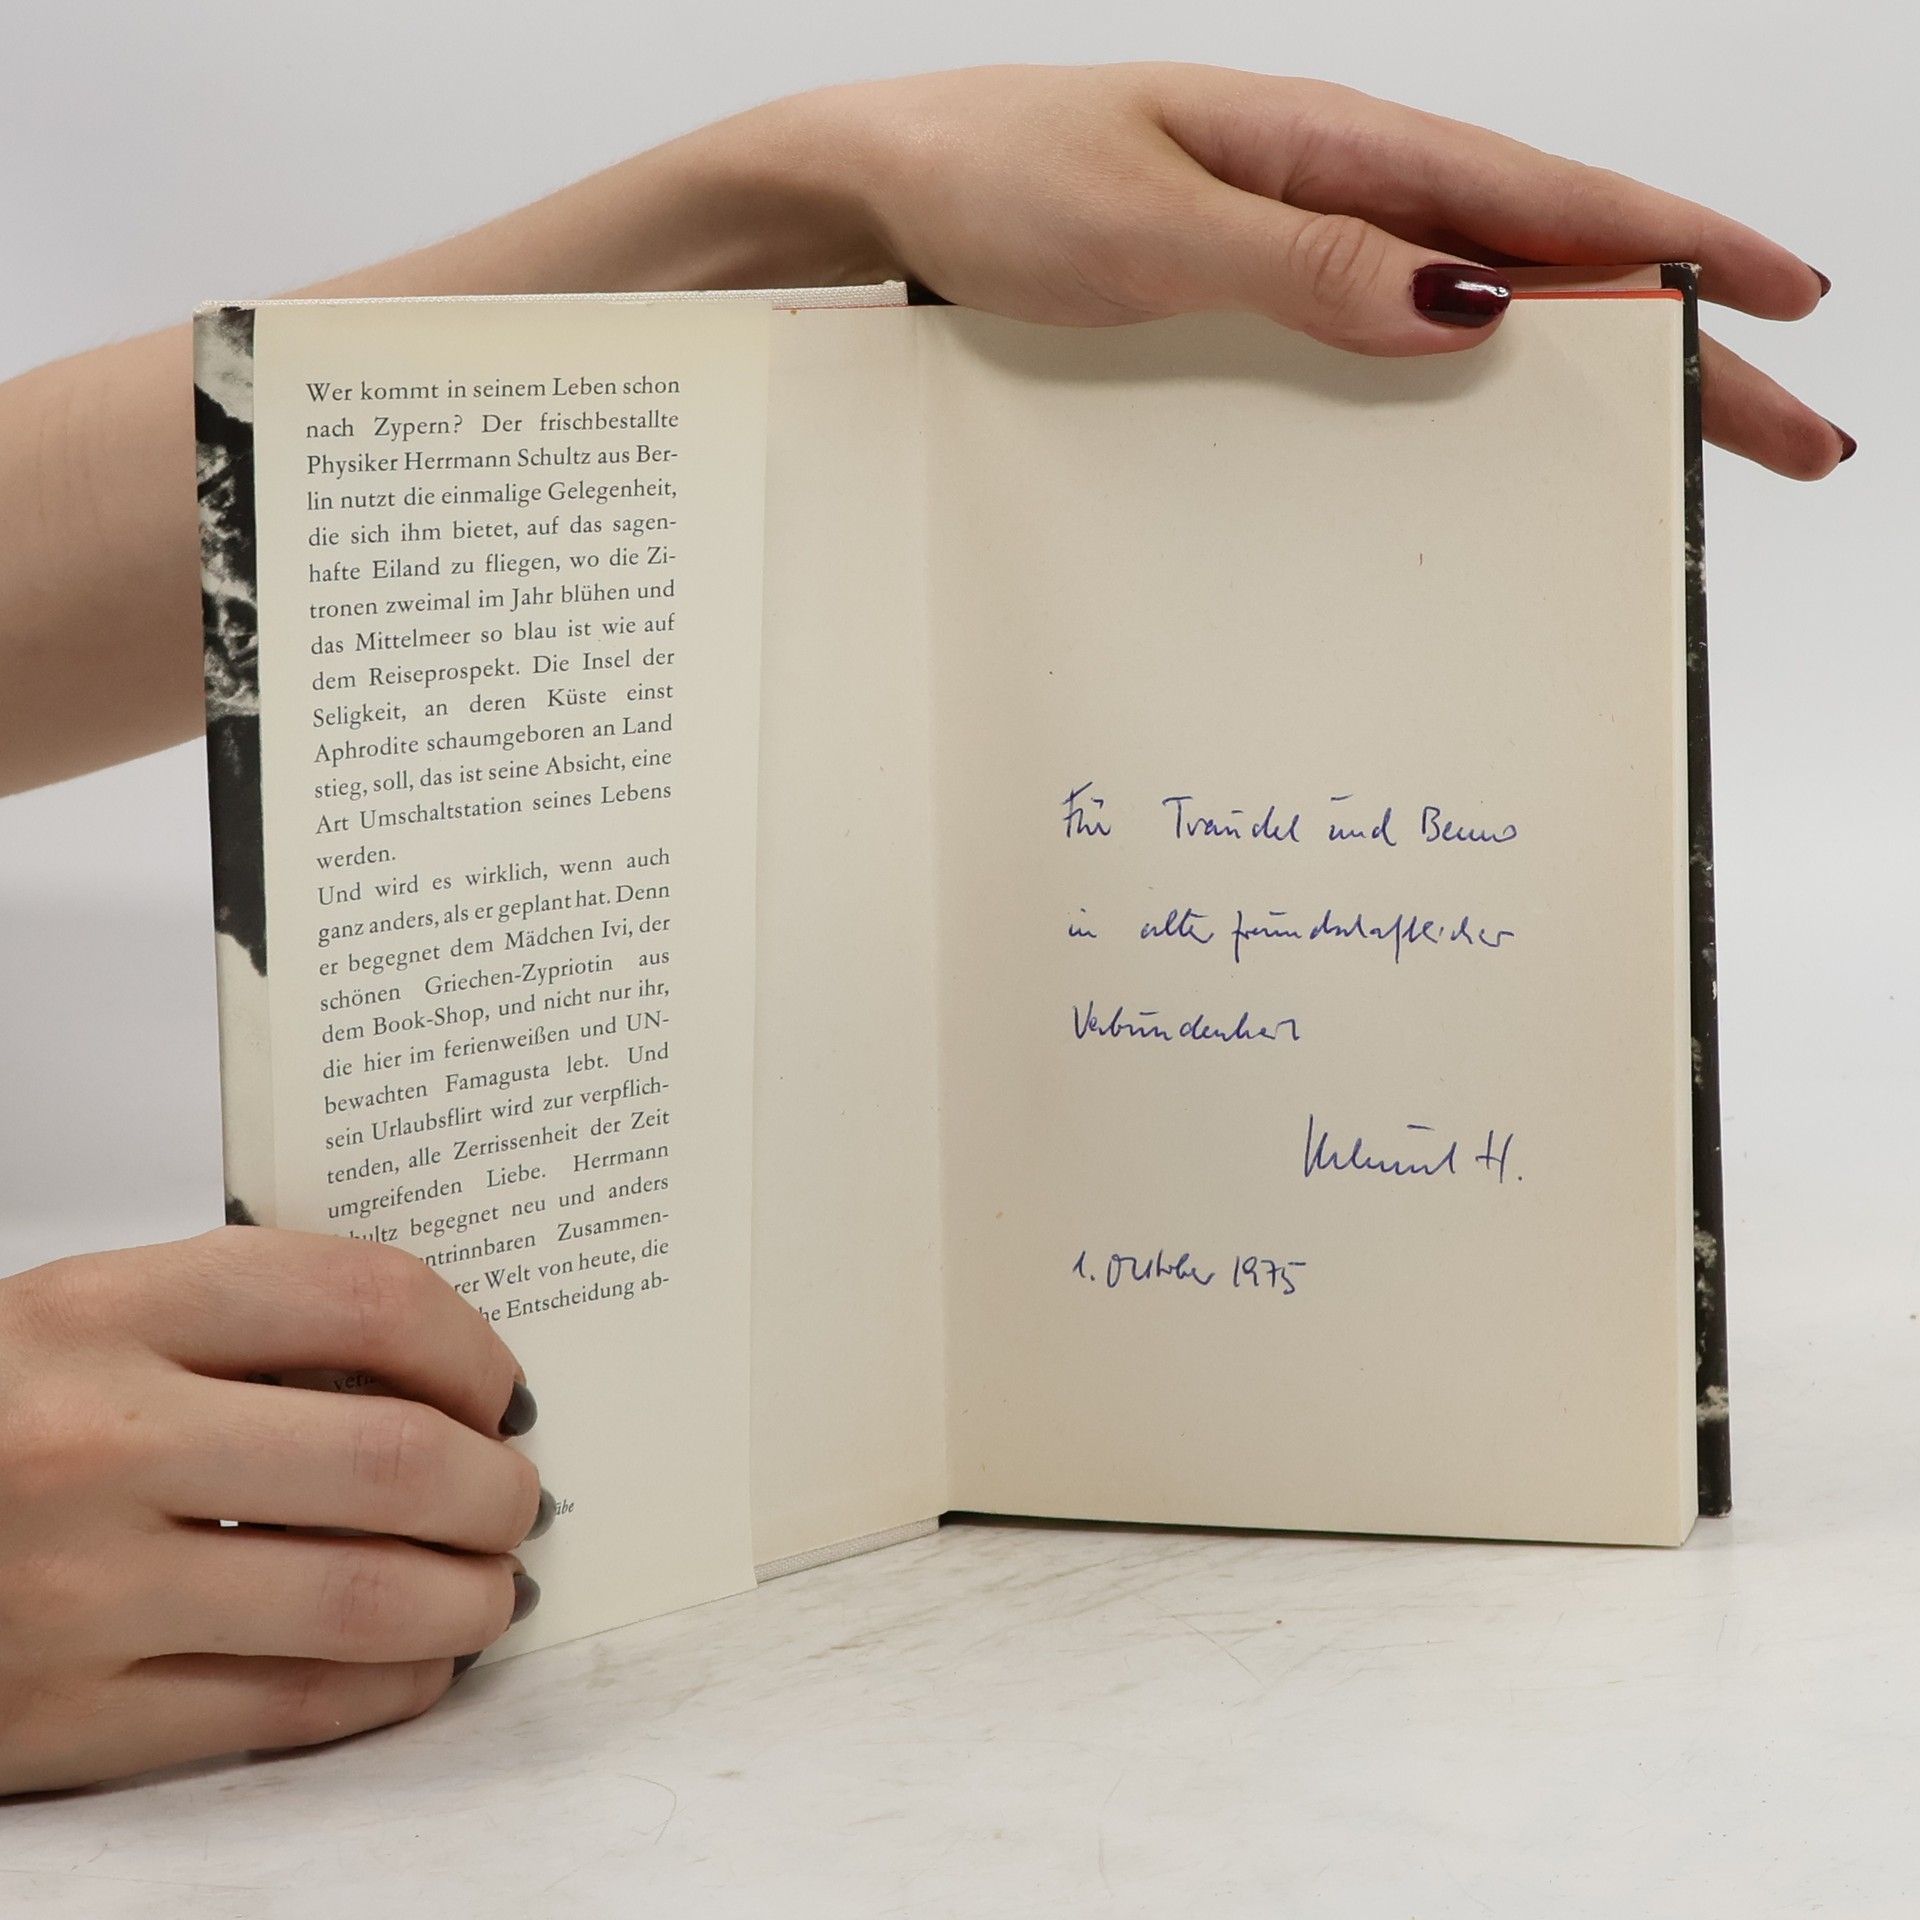 Wer kommt in seinem Leben schon
nach Zypern? Der frischbestallte
Physiker Herrmann Schultz aus Ber-
lin nutzt die einmalige Gelegenheit,
die sich ihm bietet, auf das sagen-
hafte Eiland zu fliegen, wo die Zi-
tronen zweimal im Jahr blühen und
das Mittelmeer so blau ist wie auf
dem Reiseprospekt. Die Insel der
Seligkeit, an deren Küste einst
Aphrodite schaumgeboren an Land
stieg, soll, das ist seine Absicht, eine
Art Umschaltstation seines Lebens
werden.
Und wird es wirklich, wenn auch
ganz anders, als er geplant hat. Denn
er begegnet dem Mädchen Ivi, der
schönen Griechen-Zypriotin aus
dem Book-Shop, und nicht nur ihr,
die hier im ferienweißen und UN-
bewachten Famagusta lebt. Und
sein Urlaubsflirt wird zur verpflich-
tenden, alle Zerrissenheit der Zeit
umgreifenden Liebe. Herrmann
begegnet neu und anders
Zusammen-
Welt von heute, die
Entscheidung ab-
Für Traudel und Benno
in alter freundschaftlicher
Verbundenheit
Helmut H.
1. Oktober 1975